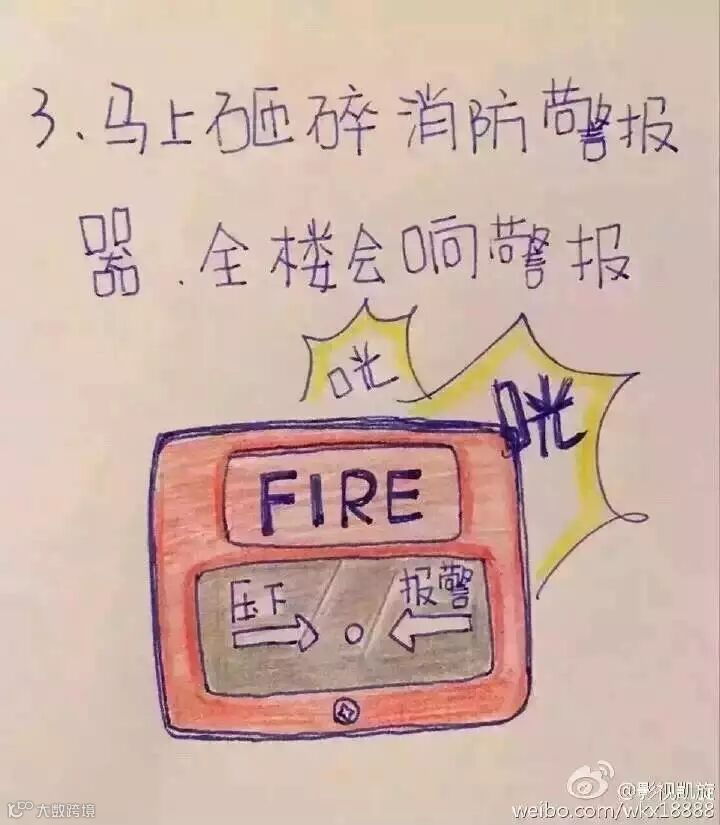 3、马上砸碎消防警报
器.全楼会响警报
咣
咣
FIRE
压下 报警
大数跨境
@影视凯旋
weibo.com/wkx18888